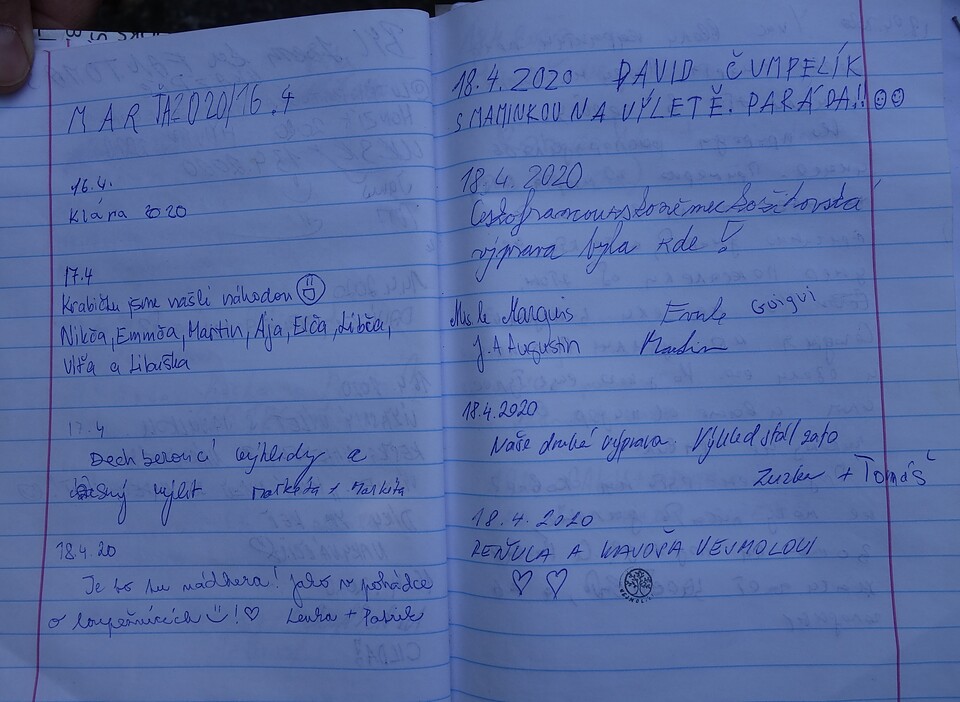 MARŤA 2020/16.4
16.4.
Klára 2020
17.4
Krabičku jsme našli náhodou
Nikča, Emmča, Martin, Aja, Elča, Libča,
Víťa a Libuška
17.4
Dech beroucí výhlidy a
výlet Markéta + Markéta
18.4.20
Je to tu nádhera! jako v pohádce
o loupežnících! ♡ Lenka + Patrik
18.4.2020 DAVID ČUMPELÍK
S MAMINKOU NA VÝLETĚ. PARÁDA!! ☺☺
18.4.2020
výprava byla zde!
Ms. le Marquis Guigui
J. A Augustin Martin
18.4.2020
Naše druhá výprava. Výhled stál zato
Zuzka + Tomáš
18.4.2020
♡ ♡